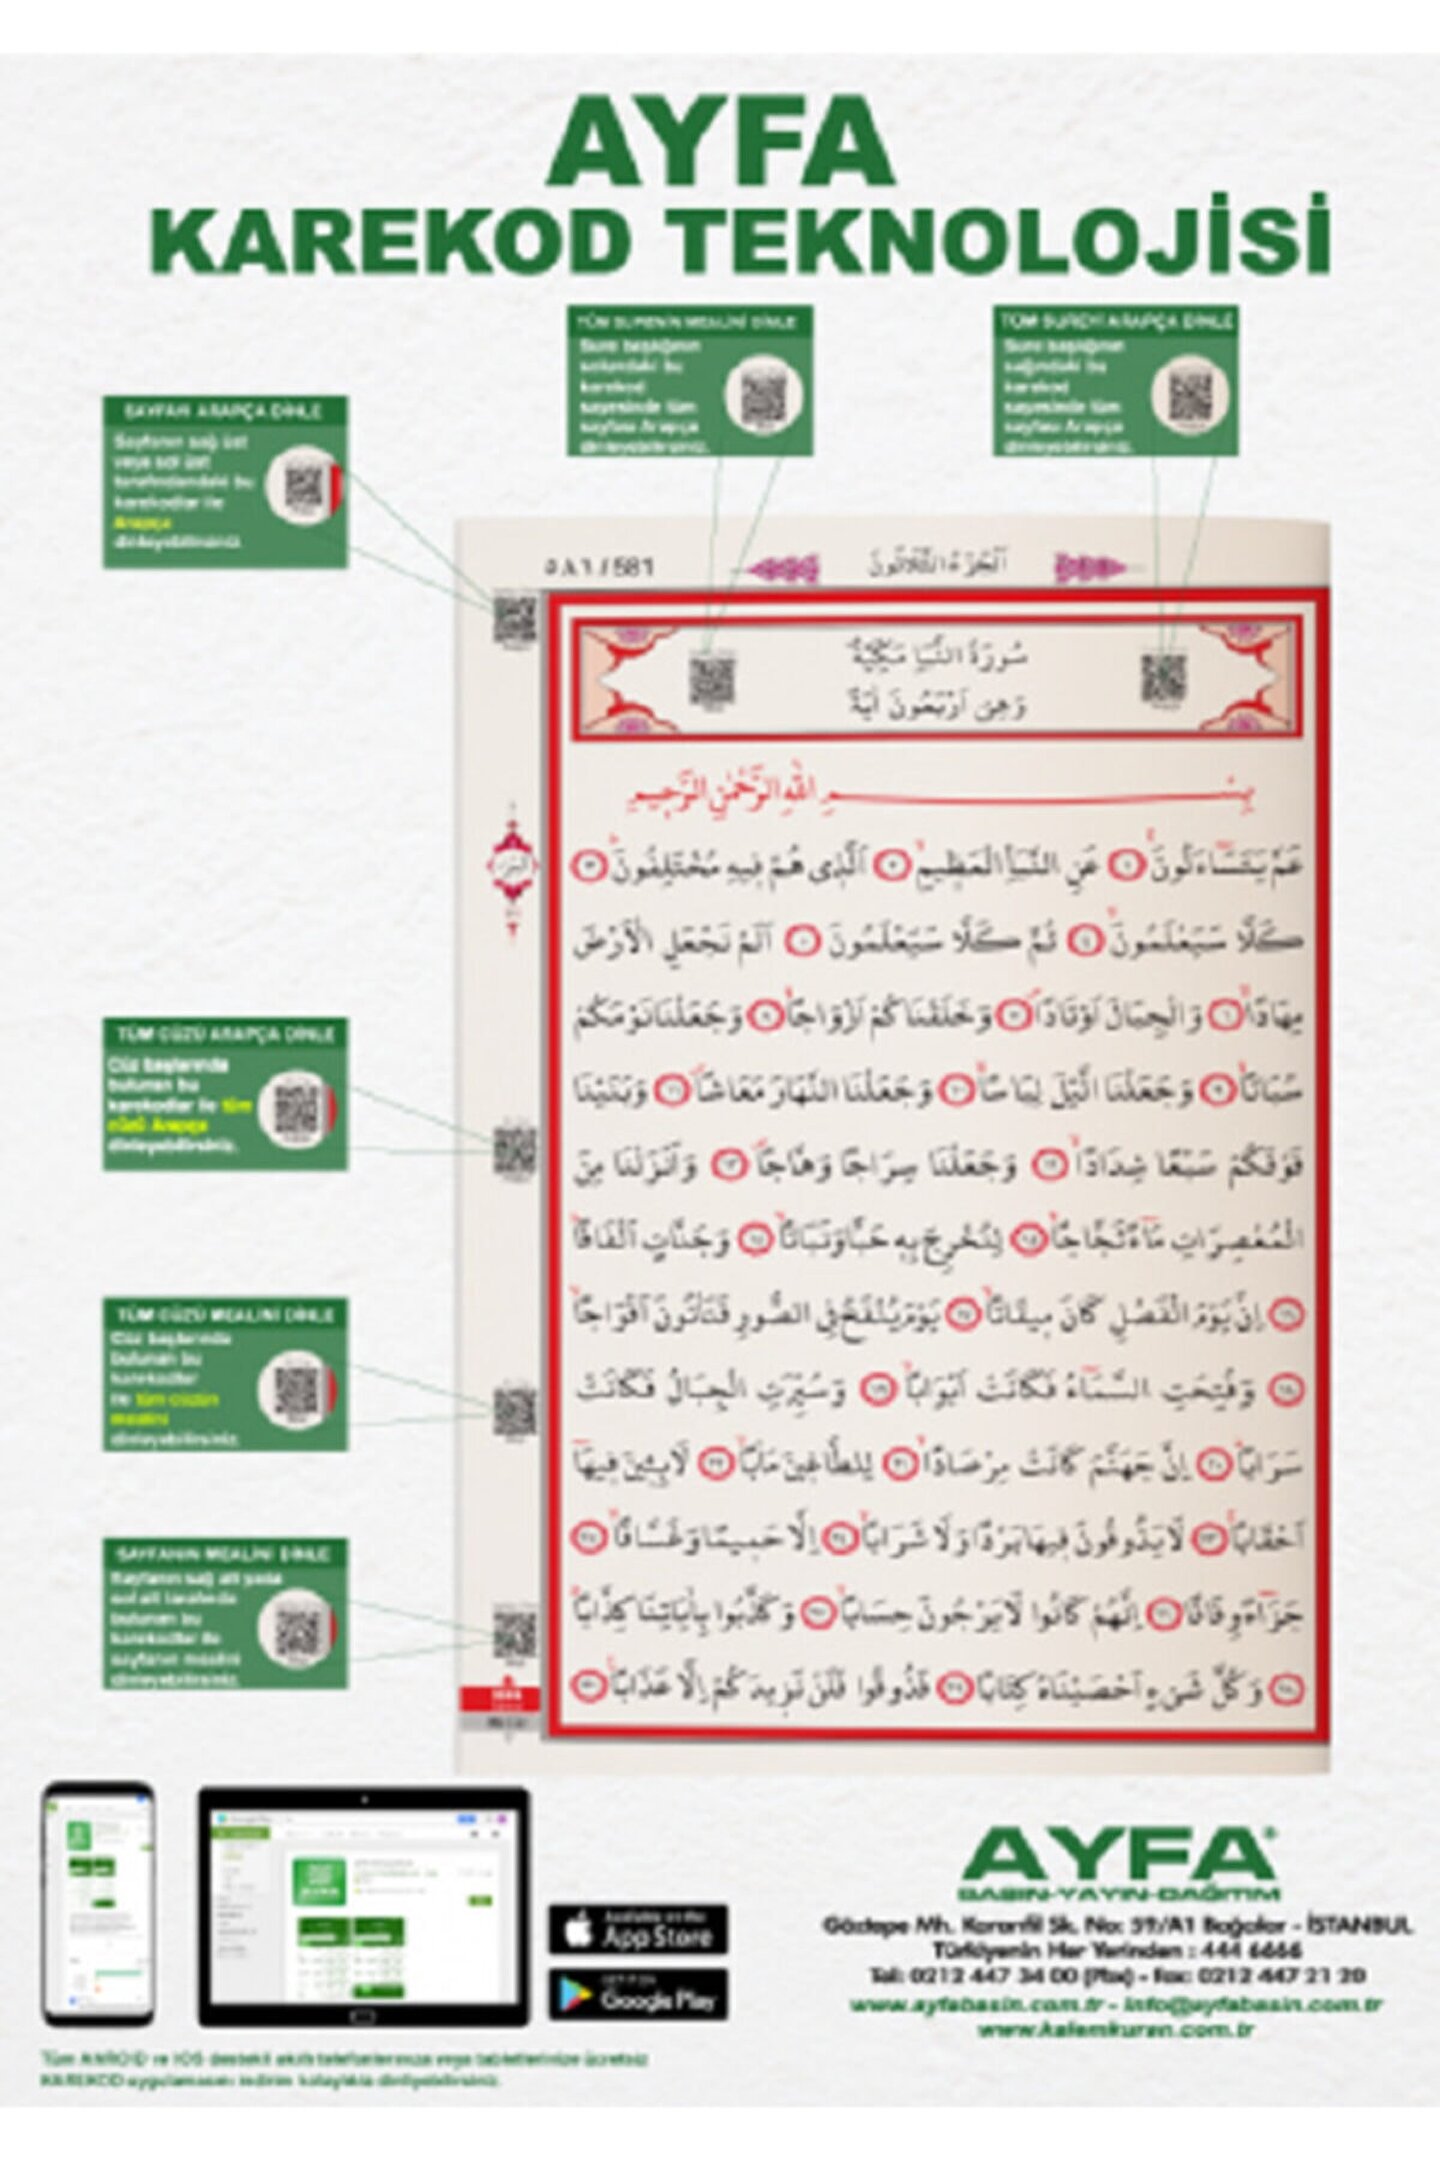 AYFA
KAREKOD TEKNOLOJİSİ
TÜM SURENİN MEALİNİ DİNLE
Sure başlığının
solundaki bu
karekod
sayesinde tüm
sayfası Arapça
dinleyebilirsiniz.
TÜM SUREYİ ARAPÇA DİNLE
Sure başlığının
sağındaki bu
karekod
sayesinde tüm
sayfası Arapça
dinleyebilirsiniz.
SAYFAYI ARAPÇA DİNLE
Sayfanın sağ üst
veya sol üst
tarafındaki bu
karekodlar ile
Arapça
dinleyebilirsiniz.
٥٨١ / 581
اَلْجُزْءُ الثَّلَاثُونَ
سُورَةُ النَّبَأِ مَكِّيَّةٌ
وَهِيَ اَرْبَعُونَ اٰيَةً
بِسْمِ اللّٰهِ الرَّحْمٰنِ الرَّحِيمِ
عَمَّ يَتَسَٓاءَلُونَۚ ١ عَنِ النَّبَأِ الْعَظ۪يمِۙ ٢ اَلَّذ۪ي هُمْ ف۪يهِ مُخْتَلِفُونَۜ ٣
كَلَّا سَيَعْلَمُونَۙ ٤ ثُمَّ كَلَّا سَيَعْلَمُونَ ٥ اَلَمْ نَجْعَلِ الْاَرْضَ
مِهَادًاۙ ٦ وَالْجِبَالَ اَوْتَادًاۖ ٧ وَخَلَقْنَاكُمْ اَزْوَاجًاۙ ٨ وَجَعَلْنَا نَوْمَكُمْ
سُبَاتًاۙ ٩ وَجَعَلْنَا الَّيْلَ لِبَاسًاۙ ١٠ وَجَعَلْنَا النَّهَارَ مَعَاشًاۖ ١١ وَبَنَيْنَا
فَوْقَكُمْ سَبْعًا شِدَادًاۙ ١٢ وَجَعَلْنَا سِرَاجًا وَهَّاجًاۖ ١٣ وَاَنْزَلْنَا مِنَ
الْمُعْصِرَاتِ مَٓاءً ثَجَّاجًاۙ ١٤ لِنُخْرِجَ بِه۪ حَبًّا وَنَبَاتًاۙ ١٥ وَجَنَّاتٍ اَلْفَافًاۜ
١٦ اِنَّ يَوْمَ الْفَصْلِ كَانَ م۪يقَاتًاۙ ١٧ يَوْمَ يُنْفَخُ فِي الصُّورِ فَتَأْتُونَ اَفْوَاجًاۙ
١٨ وَفُتِحَتِ السَّمَٓاءُ فَكَانَتْ اَبْوَابًاۙ ١٩ وَسُيِّرَتِ الْجِبَالُ فَكَانَتْ
سَرَابًاۜ ٢٠ اِنَّ جَهَنَّمَ كَانَتْ مِرْصَادًاۙ ٢١ لِلطَّاغ۪ينَ مَاٰبًاۙ ٢٢ لَابِث۪ينَ ف۪يهَٓا
اَحْقَابًاۚ ٢٣ لَا يَذُوقُونَ ف۪يهَا بَرْدًا وَلَا شَرَابًاۙ ٢٤ اِلَّا حَم۪يمًا وَغَسَّاقًاۙ ٢٥
جَزَٓاءً وِفَاقًاۜ ٢٦ اِنَّهُمْ كَانُوا لَا يَرْجُونَ حِسَابًاۙ ٢٧ وَكَذَّبُوا بِاٰيَاتِنَا كِذَّابًاۜ
٢٨ وَكُلَّ شَيْءٍ اَحْصَيْنَاهُ كِتَابًاۙ ٢٩ فَذُوقُوا فَلَنْ نَز۪يدَكُمْ اِلَّا عَذَابًا۟ ٣٠
TÜM CÜZÜ ARAPÇA DİNLE
Cüz başlarında
bulunan bu
karekodlar ile tüm
cüzü Arapça
dinleyebilirsiniz.
TÜM CÜZÜ MEALİNİ DİNLE
Cüz başlarında
bulunan bu
karekodlar
ile tüm cüzün
mealini
dinleyebilirsiniz.
SAYFANIN MEALİNİ DİNLE
Sayfanın sağ alt yada
sol alt tarafında
bulunan bu
karekodlar ile
sayfanın mealini
dinleyebilirsiniz.
Available on the
App Store
GET IT ON
Google Play
AYFA®
BASIN-YAYIN-DAĞITIM
Göztepe Mh. Karanfil Sk. No: 59/A1 Bağcılar - İSTANBUL
Türkiyenin Her Yerinden : 444 6666
Tel: 0212 447 34 00 (Pbx) - Fax: 0212 447 21 20
www.ayfabasin.com.tr - info@ayfabasin.com.tr
www.kalemkuran.com.tr
Tüm ANROID ve IOS destekli akıllı telefonlarınıza veya tabletlerinize ücretsiz
KAREKOD uygulamasını indirim kolaylıkla dinliyebilirsiniz.